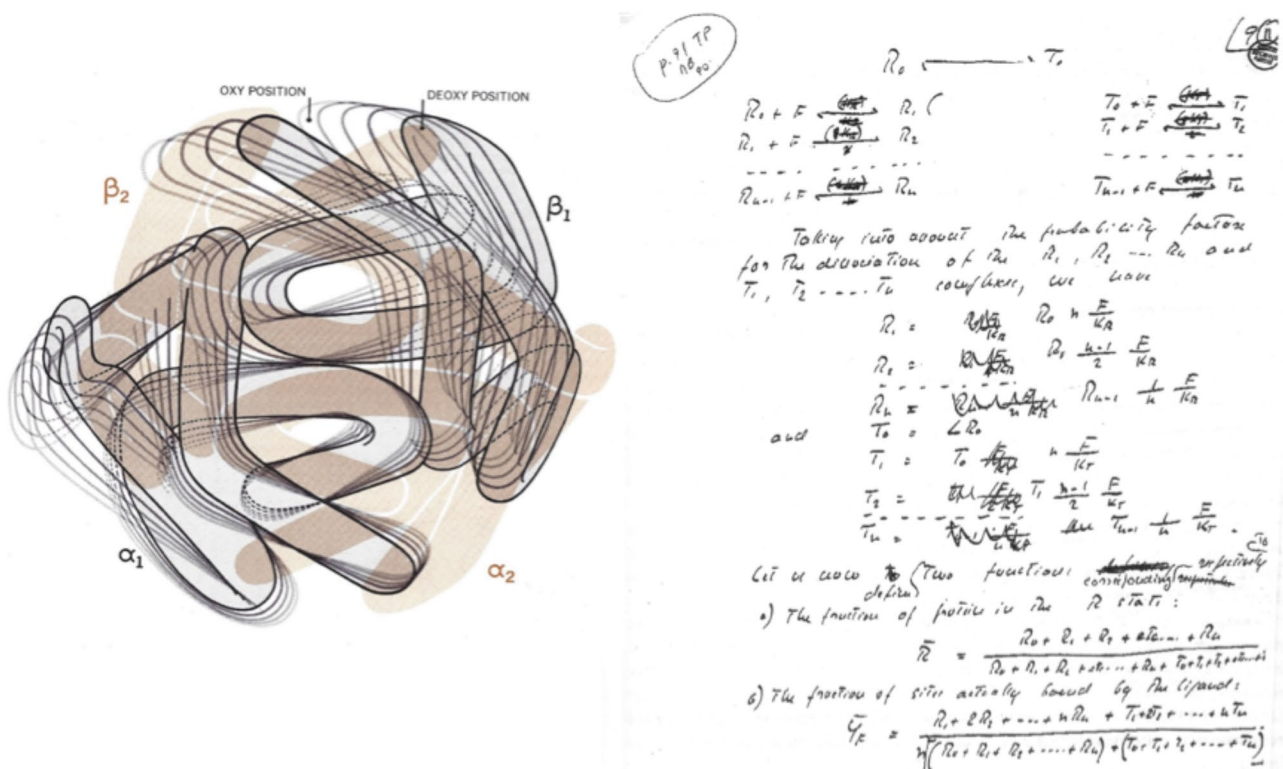 OXY POSITION
DEOXY POSITION
β₂
β₁
α₁
α₂
p. 91 TP
R₀ ⟷ T₀
R₀ + F ⟷ R₁
T₀ + F ⟷ T₁
R₁ + F ⟷ R₂
T₁ + F ⟷ T₂
Rₙ₋₁ + F ⟷ Rₙ
Tₙ₋₁ + F ⟷ Tₙ
Taking into account the probability factors
for the dissociation of the R₁, R₂ ... Rₙ and
T₁, T₂ .... Tₙ complexes, we have
R₁ = R₀ n F/K_R
R₂ = R₁ n-1/2 F/K_R
Rₙ = Rₙ₋₁ 1/n F/K_R
and T₀ = L R₀
T₁ = T₀ n F/K_T
T₂ = T₁ n-1/2 F/K_T
Tₙ = Tₙ₋₁ 1/n F/K_T .
Let us now define two functions corresponding respectively to
a) The fraction of protein in the R state :
R̄ = R₀ + R₁ + R₂ + .... + Rₙ / R₀ + R₁ + R₂ + .... + Rₙ + T₀ + T₁ + T₂ +
b) The fraction of sites actually bound by the ligand :
Ȳ_F = R₁ + 2R₂ + .... + nRₙ + T₁ + 2T₂ + .... + nTₙ / n(R₀ + R₁ + R₂ + .... + Rₙ) + (T₀ + T₁ + T₂ + .... + Tₙ)